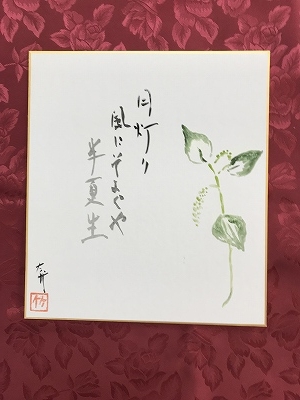 月灯り
風にそよぐや
半夏生
竹